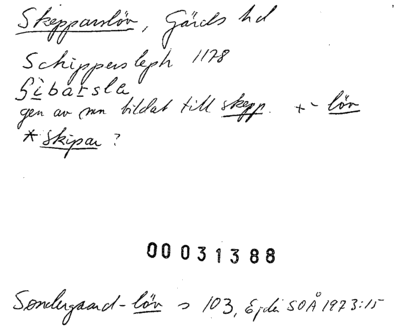 Skepparslöv, Gärds hd
Schippersleph 1178
Sibarsle
gen av mn bildat till skepp. +- löv
* Skipar ?
00031388
Søndergaard -löv s 103, Ejdi SOÅ 1973:15